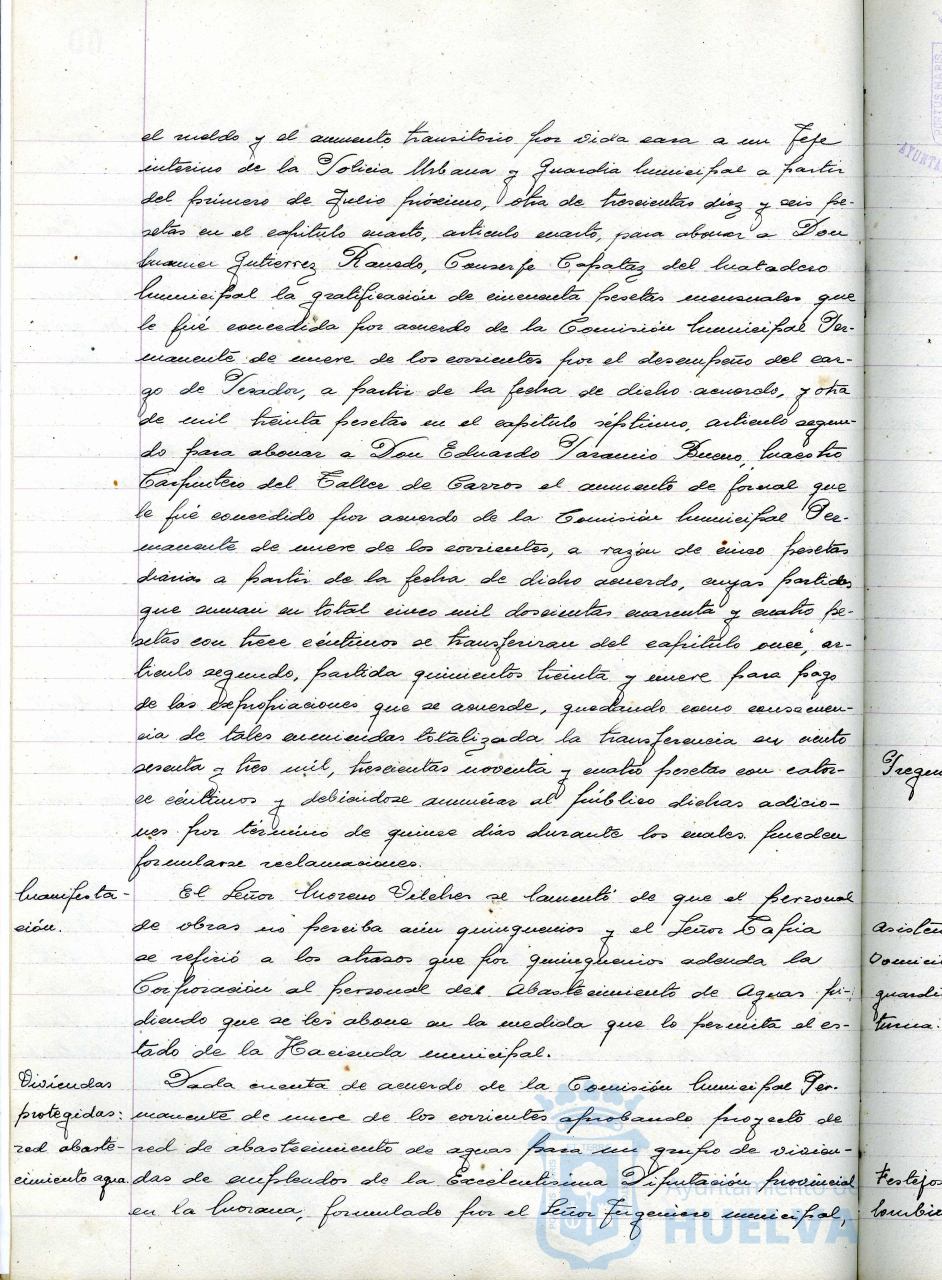 el sueldo y el aumento transitorio por vida cara a un Jefe
interino de la Policia Urbana y Guardia municipal a partir
del primero de Julio próximo, otra de trescientas diez y seis pe-
setas en el capitulo cuarto, articulo cuarto, para abonar a Don
Manuel Gutierrez Ranedo, Conserje Capataz del Matadero
municipal la gratificación de cincuenta pesetas mensuales que
le fué concedida por acuerdo de la Comisión municipal Per-
manente de nueve de los corrientes por el desempeño del car-
go de Pesador, a partir de la fecha de dicho acuerdo, y otra
de mil treinta pesetas en el capitulo séptimo, articulo segun-
do para abonar a Don Eduardo Paramio Bueno, Maestro
Carpintero del Taller de Carros el aumento de jornal que
le fué concedido por acuerdo de la Comisión municipal Per-
manente de nueve de los corrientes, a razón de cinco pesetas
diarias a partir de la fecha de dicho acuerdo, cuyas partidas
que suman en total cinco mil doscientas cuarenta y cuatro pe-
setas con trece céntimos se transferiran del capitulo once, ar-
ticulo segundo, partida quinientos treinta y nueve para pago
de las expropiaciones que se acuerde, quedando como consecuen-
cia de tales enmiendas totalizada la transferencia en ciento
sesenta y tres mil, trescientas noventa y cuatro pesetas con cator-
ce céntimos y debiéndose anunciar al público dichas adicio-
nes por término de quince dias durante los cuales pueden
formularse reclamaciones.
Manifesta-
ción.
El Señor Moreno Vilches se lamentó de que el personal
de obras no perciba aún quinquenios y el Señor Tapia
se refirió a los atrasos que por quinquenios adeuda la
Corporación al personal del Abastecimiento de Aguas pi-
diendo que se les abone en la medida que lo permita el es-
tado de la Hacienda municipal.
Viviendas
protegidas:
red abaste-
cimiento agua.
Dada cuenta de acuerdo de la Comisión municipal Per-
manente de nueve de los corrientes aprobando proyecto de
red de abastecimiento de aguas para un grupo de vivien-
das de empleados de la Excelentisima Diputación provincial
en la Morana, formulado por el Señor Ingeniero municipal,
Ayuntamiento de
HUELVA
Pregun
asisten
domicil
guardi
turna:
Festejos